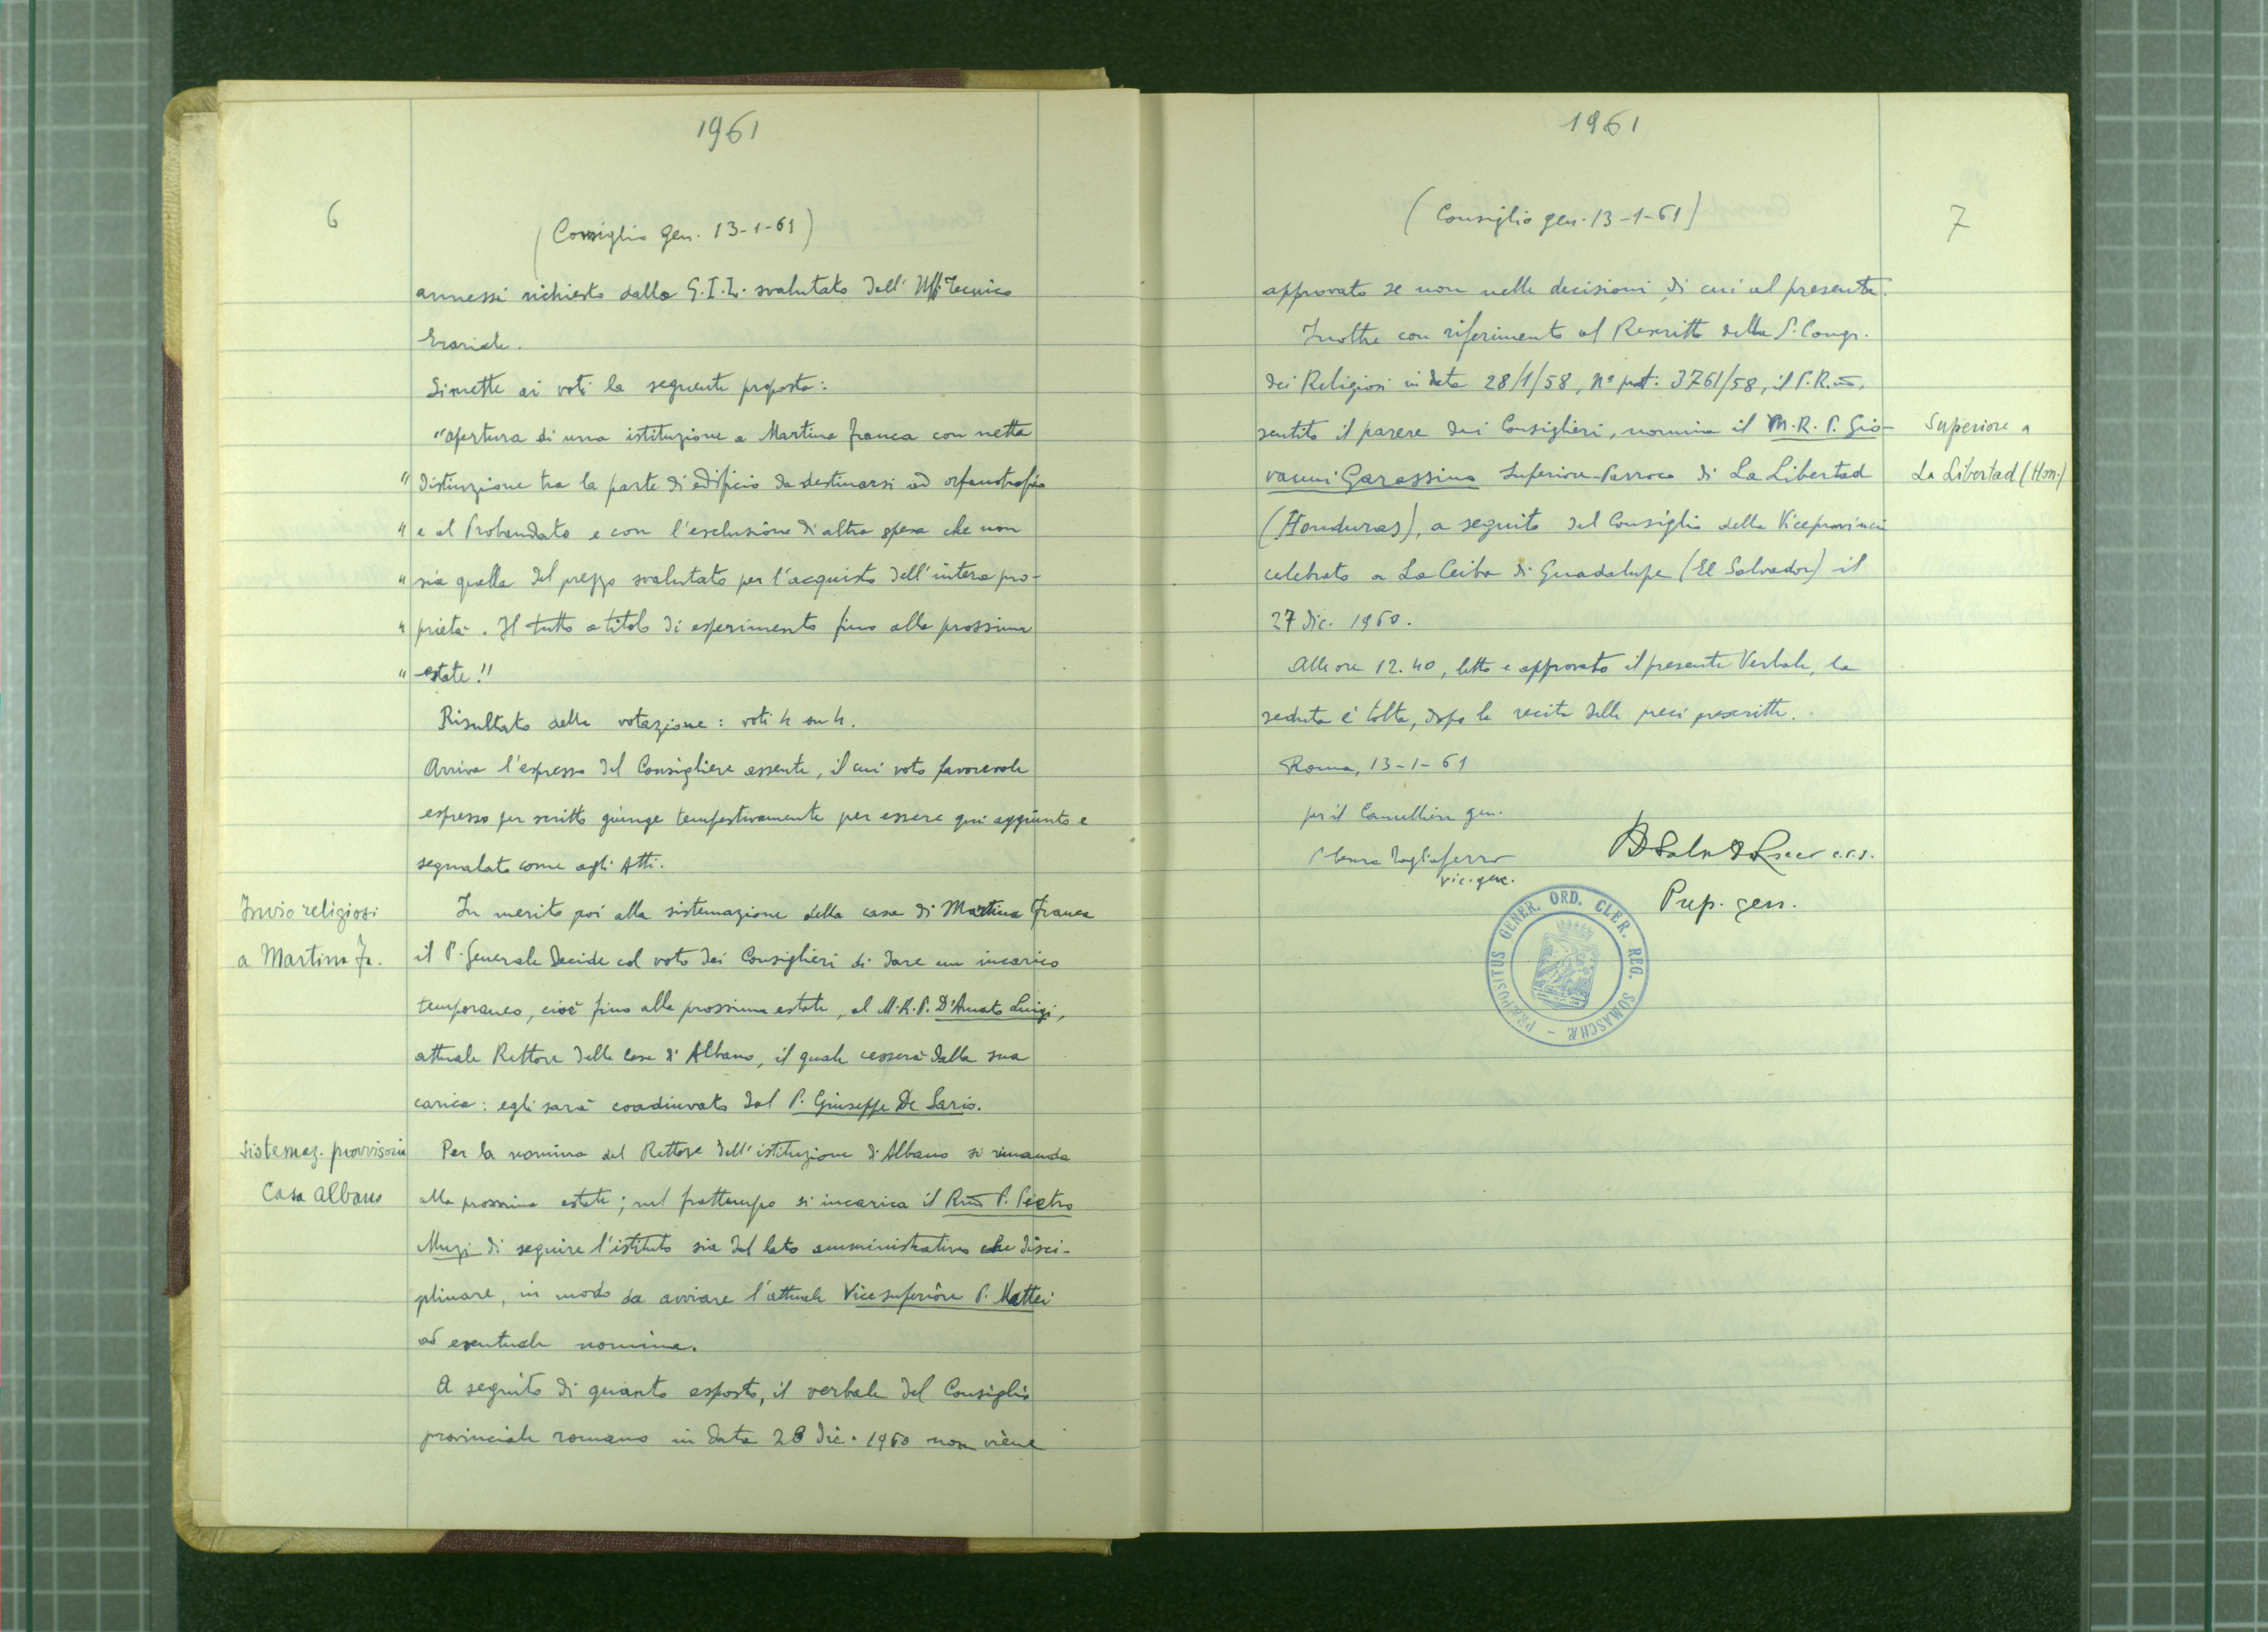 1961
6
(Consiglio gen. 13-1-61)
annessi richiesto dalla G.I.L. svalutato dell' Uff. Tecnico
Erariale.
Si mette ai voti la seguente proposta:
"apertura di una istituzione a Martina Franca con netta
" distinzione tra la parte di edificio da destinarsi ad orfanotrofio
" e al Probandato e con l'esclusione di altra spesa che non
" sia quella del prezzo svalutato per l'acquisto dell'intera pro-
" prietà. Il tutto a titolo di esperimento fino alla prossima
" estate."
Risultato della votazione: voti 4 su 4.
Arriva l'espresso del Consigliere assente, il cui voto favorevole
espresso per scritto giunge tempestivamente per essere qui aggiunto e
segnalato come agli Atti.
Invio religiosi
a Martina Fr.
In merito poi alla sistemazione della casa di Martina Franca
il P. Generale decide col voto dei Consiglieri di dare un incarico
temporaneo, cioè fino alla prossima estate, al M.R.P. D'Amato Luigi,
attuale Rettore della Casa di Albano, il quale cesserà dalla sua
carica: egli sarà coadiuvato dal P. Giuseppe De Sario.
Sistemaz. provvisoria
Casa Albano
Per la nomina del Rettore dell'istituzione di Albano si rimanda
alla prossima estate; nel frattempo si incarica il Rmo P. Pietro
Muzi di seguire l'istituto sia dal lato amministrativo che disci-
plinare, in modo da avviare l'attuale Vicesuperiore P. Mattei
ad eventuale nomina.
A seguito di quanto esposto, il verbale del Consiglio
provinciale romano in data 28 dic. 1960 non viene
1961
7
(Consiglio gen. 13-1-61)
approvato se non nelle decisioni di cui al presente.
Inoltre con riferimento al Rescritto della S. Congr.
dei Religiosi in data 28/1/58, n° prot. 3761/58, il P. R.mo,
sentito il parere dei Consiglieri, nomina il M.R.P. Gio-
vanni Garassino Superiore-Parroco di La Libertad
(Honduras), a seguito del Consiglio della Viceprovincia
celebrato a La Ceiba di Guadalupe (El Salvador) il
27 dic. 1960.
Superiore a
La Libertad (Hon.)
Alle ore 12.40, letto e approvato il presente Verbale, la
seduta è tolta, dopo la recita delle preci prescritte.
Roma, 13-1-61
per il Cancelliere gen.
Tagliaferro
vic. gen.
c.r.s.
Prep. gen.
PRÆPOSITUS GENER. ORD. CLER. REG. SOMASCHÆ